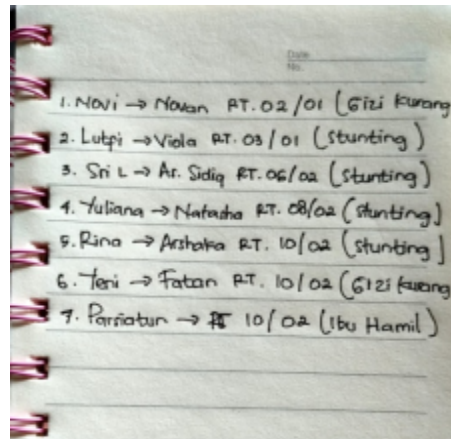 Date
No.
1. Novi → Novan RT. 02/01 (Gizi kurang
2. Lutpi → Viola RT. 03/01 (Stunting)
3. Sri L → Ar. Sidiq RT. 06/02 (Stunting)
4. Yuliana → Natasha RT. 08/02 (stunting]
5. Rina → Arshaka RT. 10/02 (stunting]
6. Yeni → Fatan RT. 10/02 (Gizi kurang
7. Parsiatun → 10/02 (Ibu Hamil)